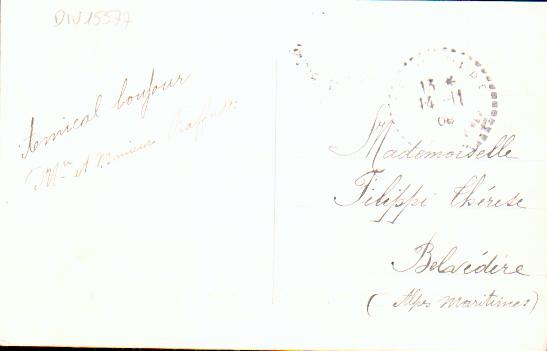 DIV15577
Amical bonjour
Mme et Monsieur
13 *
14-11
06
Mademoiselle
Filippi Thérèse
Belvédère
(Alpes Maritimes)